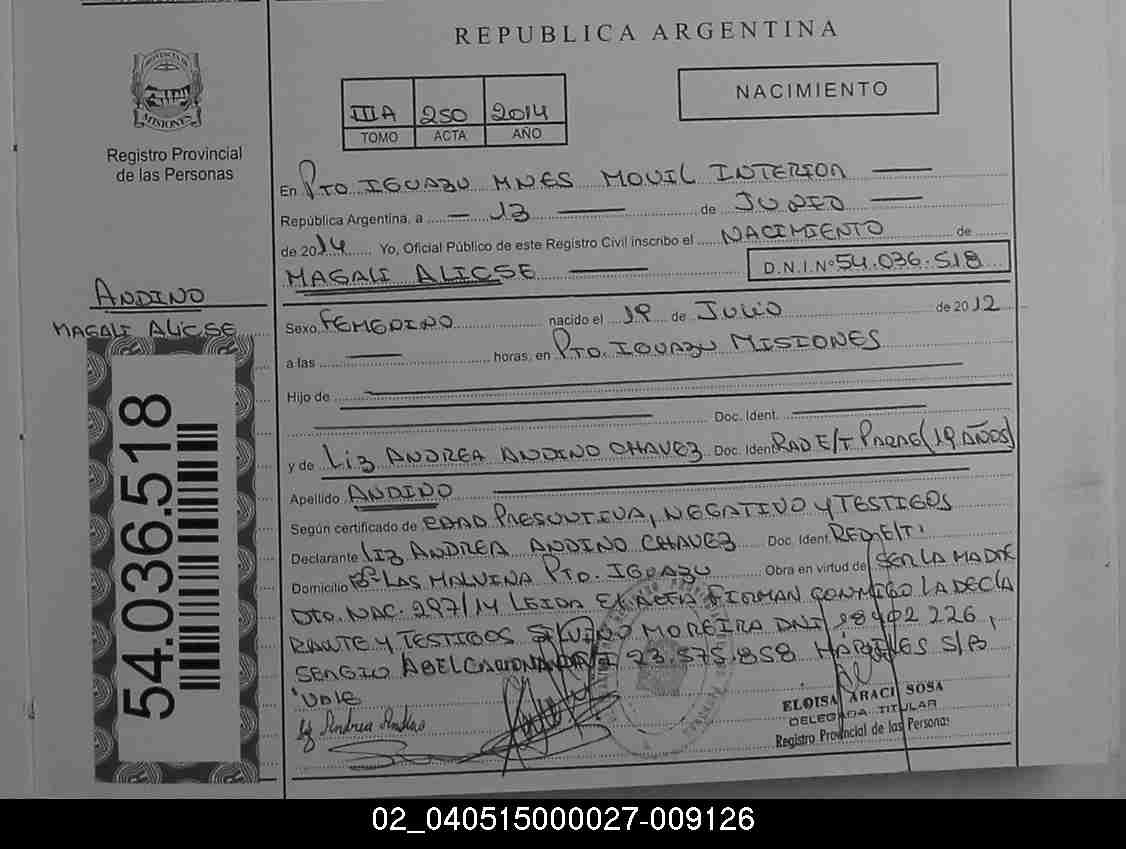 REPUBLICA ARGENTINA
PROVINCIA DE
MISIONES
Registro Provincial
de las Personas
IIIA 250 2014
TOMO ACTA AÑO
NACIMIENTO
En PTO IGUAZU MNES MOVIL INTERIOR
República Argentina, a 13 de JUNIO
de 2014 Yo, Oficial Público de este Registro Civil inscribo el NACIMIENTO de
MAGALI ALICSE D.N.I. Nº 54.036.518
ANDINO
MAGALI ALICSE
54.036.518
Sexo FEMENINO nacido el 19 de JULIO de 2012
a las horas, en PTO. IGUAZU MISIONES
Hijo de
Doc. Ident.
y de LIZ ANDREA ANDINO CHAVEZ Doc. Iden RAD E/T PARAG (19 AÑOS)
Apellido ANDINO
Según certificado de EDAD PRESUNTIVA, NEGATIVO Y TESTIGOS
Declarante LIZ ANDREA ANDINO CHAVEZ Doc. Ident.
Domicilio Bº LAS MALVINA PTO. IGUAZU Obra en virtud de SER LA MADRE
DTO. NAC. 297/14 LEIDA EL ACTA FIRMAN CONMIGO LA DECLA
RANTE Y TESTIGOS SILVINO MOREIRA DNI 18902226,
SERGIO ABEL DNI 23.575.858 HABILES S/B
VALE
Liz Andrea Andino
ELOISA ARACI SOSA
DELEGADA TITULAR
Registro Provincial de las Personas
02_040515000027-009126